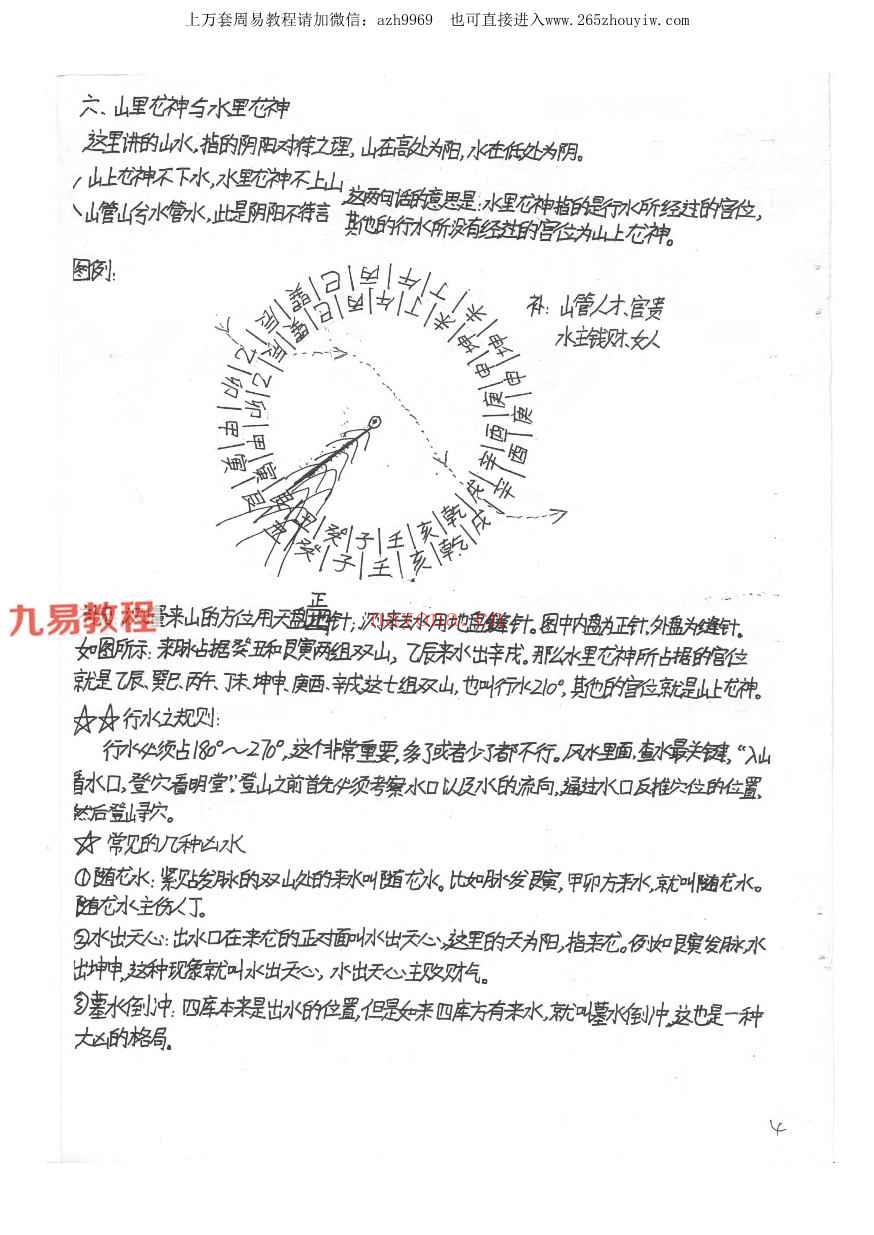 上万套周易教程请加微信：azh9969 也可直接进入www.265zhouyiw.com
六、山里龙神与水里龙神
这里讲的山水，指的阴阳对待之理，山在高处为阳，水在低处为阴。
山上龙神不下水，水里龙神不上山
山管山兮水管水，此是阴阳不待言
这两句话的意思是：水里龙神指的是行水所经过的宫位，
其他的行水所没有经过的宫位为山上龙神。
图例：
补：山管人才、官贵
水主钱财、女人
乙 辰 巽 巳 丙 午 丁 未 坤 申 庚 酉 辛 戌 乾 亥 壬 子 癸 丑 艮 寅 甲 卯
乙 辰 巽 巳 丙 午 丁 未 坤 申 庚 酉 辛 戌 乾 亥 壬 子 癸 丑 艮 寅 甲 卯
九易教程
量来山的方位用天盘正针；来去水用地盘缝针。图中内盘为正针，外盘为缝针。
如图所示：来脉占据癸丑和艮寅两组双山，乙辰来水出辛戌。那么水里龙神所占据的宫位
就是乙辰、巽巳、丙午、丁未、坤申、庚酉、辛戌这七组双山，也叫行水210°，其他的宫位就是山上龙神。
☆☆行水之规则：
行水必须占180°～270°，这个非常重要，多了或者少了都不行。风水里面，查水最关键，“入山
看水口，登穴看明堂”。登山之前首先必须考察水口以及水的流向，通过水口反推穴位的位置，
然后登山寻穴。
☆ 常见的几种凶水
①随龙水：紧贴发脉的双山处的来水叫随龙水。比如脉发艮寅，甲卯方来水，就叫随龙水。
随龙水主伤人丁。
②水出天心：出水口在来龙的正对面叫水出天心，这里的天为阳，指来龙。例如艮寅发脉，水
出坤申，这种现象就叫水出天心，水出天心主败财气。
③墓水倒冲：四库本来是出水的位置，但是如来四库方有来水，就叫墓水倒冲。这也是一种
大凶的格局。
4